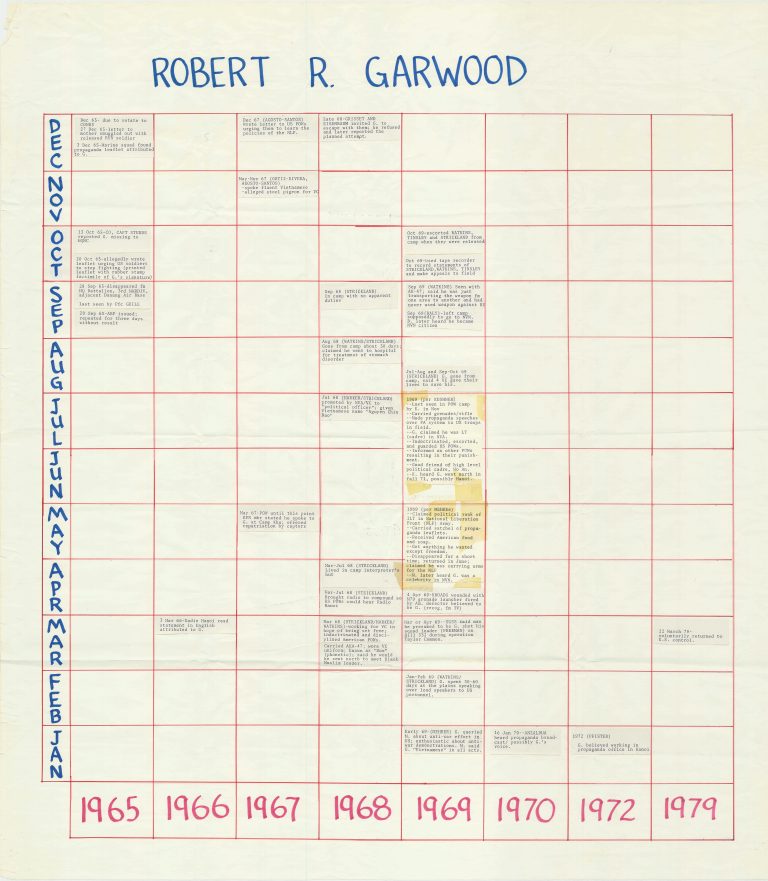 ROBERT R. GARWOOD
DEC
Dec 65- due to rotate to
CONUS
27 Dec 65-letter to
mother smuggled out with
released soldier
2 Dec 65-Marine squad found
propaganda leaflet attributed
to G.
Dec 67 (AGOSTO-SANTOS)
wrote letter to US POWs
urging them to learn the
policies of the NLF.
Late 68-GRISSETT AND
EISENBRAUN invited G. to
escape with them; he refused
and later reported the
planned attempt.
NOV
Mar-Nov 67 (ORTIZ-RIVERA,
AGOSTO-SANTOS)
-spoke fluent Vietnamese
-alleged stool pigeon for VC
OCT
13 Oct 65-CO, CAPT STEENS
reported G. missing to
HQMC
20 Oct 65-allegedly wrote
leaflet urging US soldiers
to stop fighting (printed
leaflet with rubber stamp
facsimile of G.'s signature)
Oct 69-escorted WATKINS,
TINSLEY and STRICKLAND from
camp when they were released
Oct 69-used tape recorder
to record statements of
STRICKLAND,WATKINS, TINSLEY
and make appeals to field
SEP
28 Sep 65-disappeared fm
HQ Battalion, 3rd MARDIV,
adjacent Danang Air Base
last seen by Pfc
29 Sep 65-APB issued;
repeated for three days
without result
Sep 68 (STRICKLAND)
In camp with no apparent
duties
Sep 69 (WATKINS) Seen with
AK-47; said he was just
transporting the weapon fm
one area to another and had
never used weapon against US
Sep 69(DALY)-left camp
supposedly to go to NVN.
D. later heard he became
NVN citizen
AUG
Aug 68 (WATKINS/STRICKLAND)
Gone from camp about 30 days;
claimed he went to hospital
for treatment of stomach
disorder
Jul-Aug and Sep-Oct 69
(STRICKLAND) G. gone from
camp, said 4 VC gave their
lives to save his.
JUL
Jul 68 (HARKER/STRICKLAND)
promoted by NVA/VC to
"political officer"; given
Vietnamese name "Nguyen Chien
Dau"
1969 (per KUSHNER)
--Last seen in POW camp
by K. in Nov
--Carried grenades/rifle
--Made propaganda speeches
over PA system to US troops
in field.
--G. claimed he was LT
(cadre) in NVA.
--Indoctrinated, escorted,
and guarded US POWs.
--Informed on other POWs
resulting in their punish-
ment.
--Good friend of high level
political cadre, Mr Ho.
--K. heard G. went north in
fall 71, possibly Hanoi.
JUN
MAY
Mar 67-POW until this point
RVN who stated he spoke to
G. at Camp Khu; offered
repatriation by captors
1969 (per MEHRER)
--Claimed political rank of
1LT in National Liberation
Front (NLF) Army.
--Carried satchel of propa-
ganda leaflets.
--Received American food
and soap.
--Got anything he wanted
except freedom.
--Disappeared for a short
time; returned in June;
claimed he was carrying arms
for the NLF
--M. later heard G. was a
celebrity in NVN.
APR
Mar-Jul 68 (STRICKLAND)
Lived in camp interpreter's
hut
Mar-Jul 68 (STRICKLAND)
Brought radio to compound so
US POWs could hear Radio
Hanoi
4 Apr 69-RHOADS wounded with
M79 grenade launcher fired
by AB. defector believed to
be G. (recog. fm IR)
MAR
2 Mar 66-Radio Hanoi read
statement in English
attributed to G.
Mar 68 (STRICKLAND/HARKER/
WATKINS)-working for VC in
hope of being set free;
indoctrinated and disci-
plined American POWs.
Carried AK-47; wore VC
uniform; known as "Dao"
(phonetic); said he would
be sent north to meet Black
Muslim leader.
Mar or Apr 69--RUSE said man
he presumed to be G. shot his
squad leader (FREEMAN) on
Hill 551 during operation
Taylor Common.
22 March 79-
voluntarily returned to
U.S. control.
FEB
Jan-Feb 69 (WATKINS/
STRICKLAND) G. spent 30-60
days at the plains speaking
over loud speakers to US
personnel.
JAN
Early 69 (MEHRER) G. queried
M. about anti-war effort in
US; enthusiastic about anti-
war demonstrations. M. said
G. "Vietnamese" in all acts.
16 Jan 70--ANZALDUA
heard propaganda broad-
cast/ possibly G.'s
voice.
1972 (FEISTER)
G. believed working in
propaganda office in Hanoi
1965 1966 1967 1968 1969 1970 1972 1979